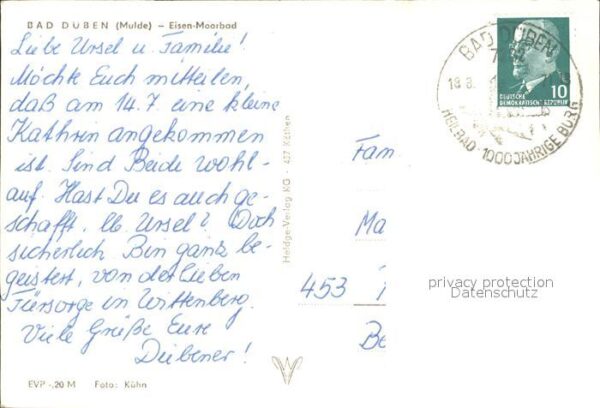 BAD DÜBEN (Mulde) – Eisen-Moorbad
Liebe Ursel u. Familie!
Möchte Euch mitteilen,
daß am 14.7 eine kleine
Kathrin angekommen
ist. Sind Beide wohl-
auf. Hast Du es auch ge-
schafft, lb. Ursel? Doch
sicherlich. Bin ganz be-
geistert, von der lieben
Fürsorge in Wittenberg.
Viele Grüße Eure
Dübener!
EVP -.20 M Foto: Kühn
Heldge-Verlag KG · 437 Köthen
BAD DÜBEN
18.8.
HEILBAD · 1000JÄHRIGE BURG
10
DEUTSCHE
DEMOKRATISCHE REPUBLIK
Fam
Ma
453
Be
privacy protection
Datenschutz